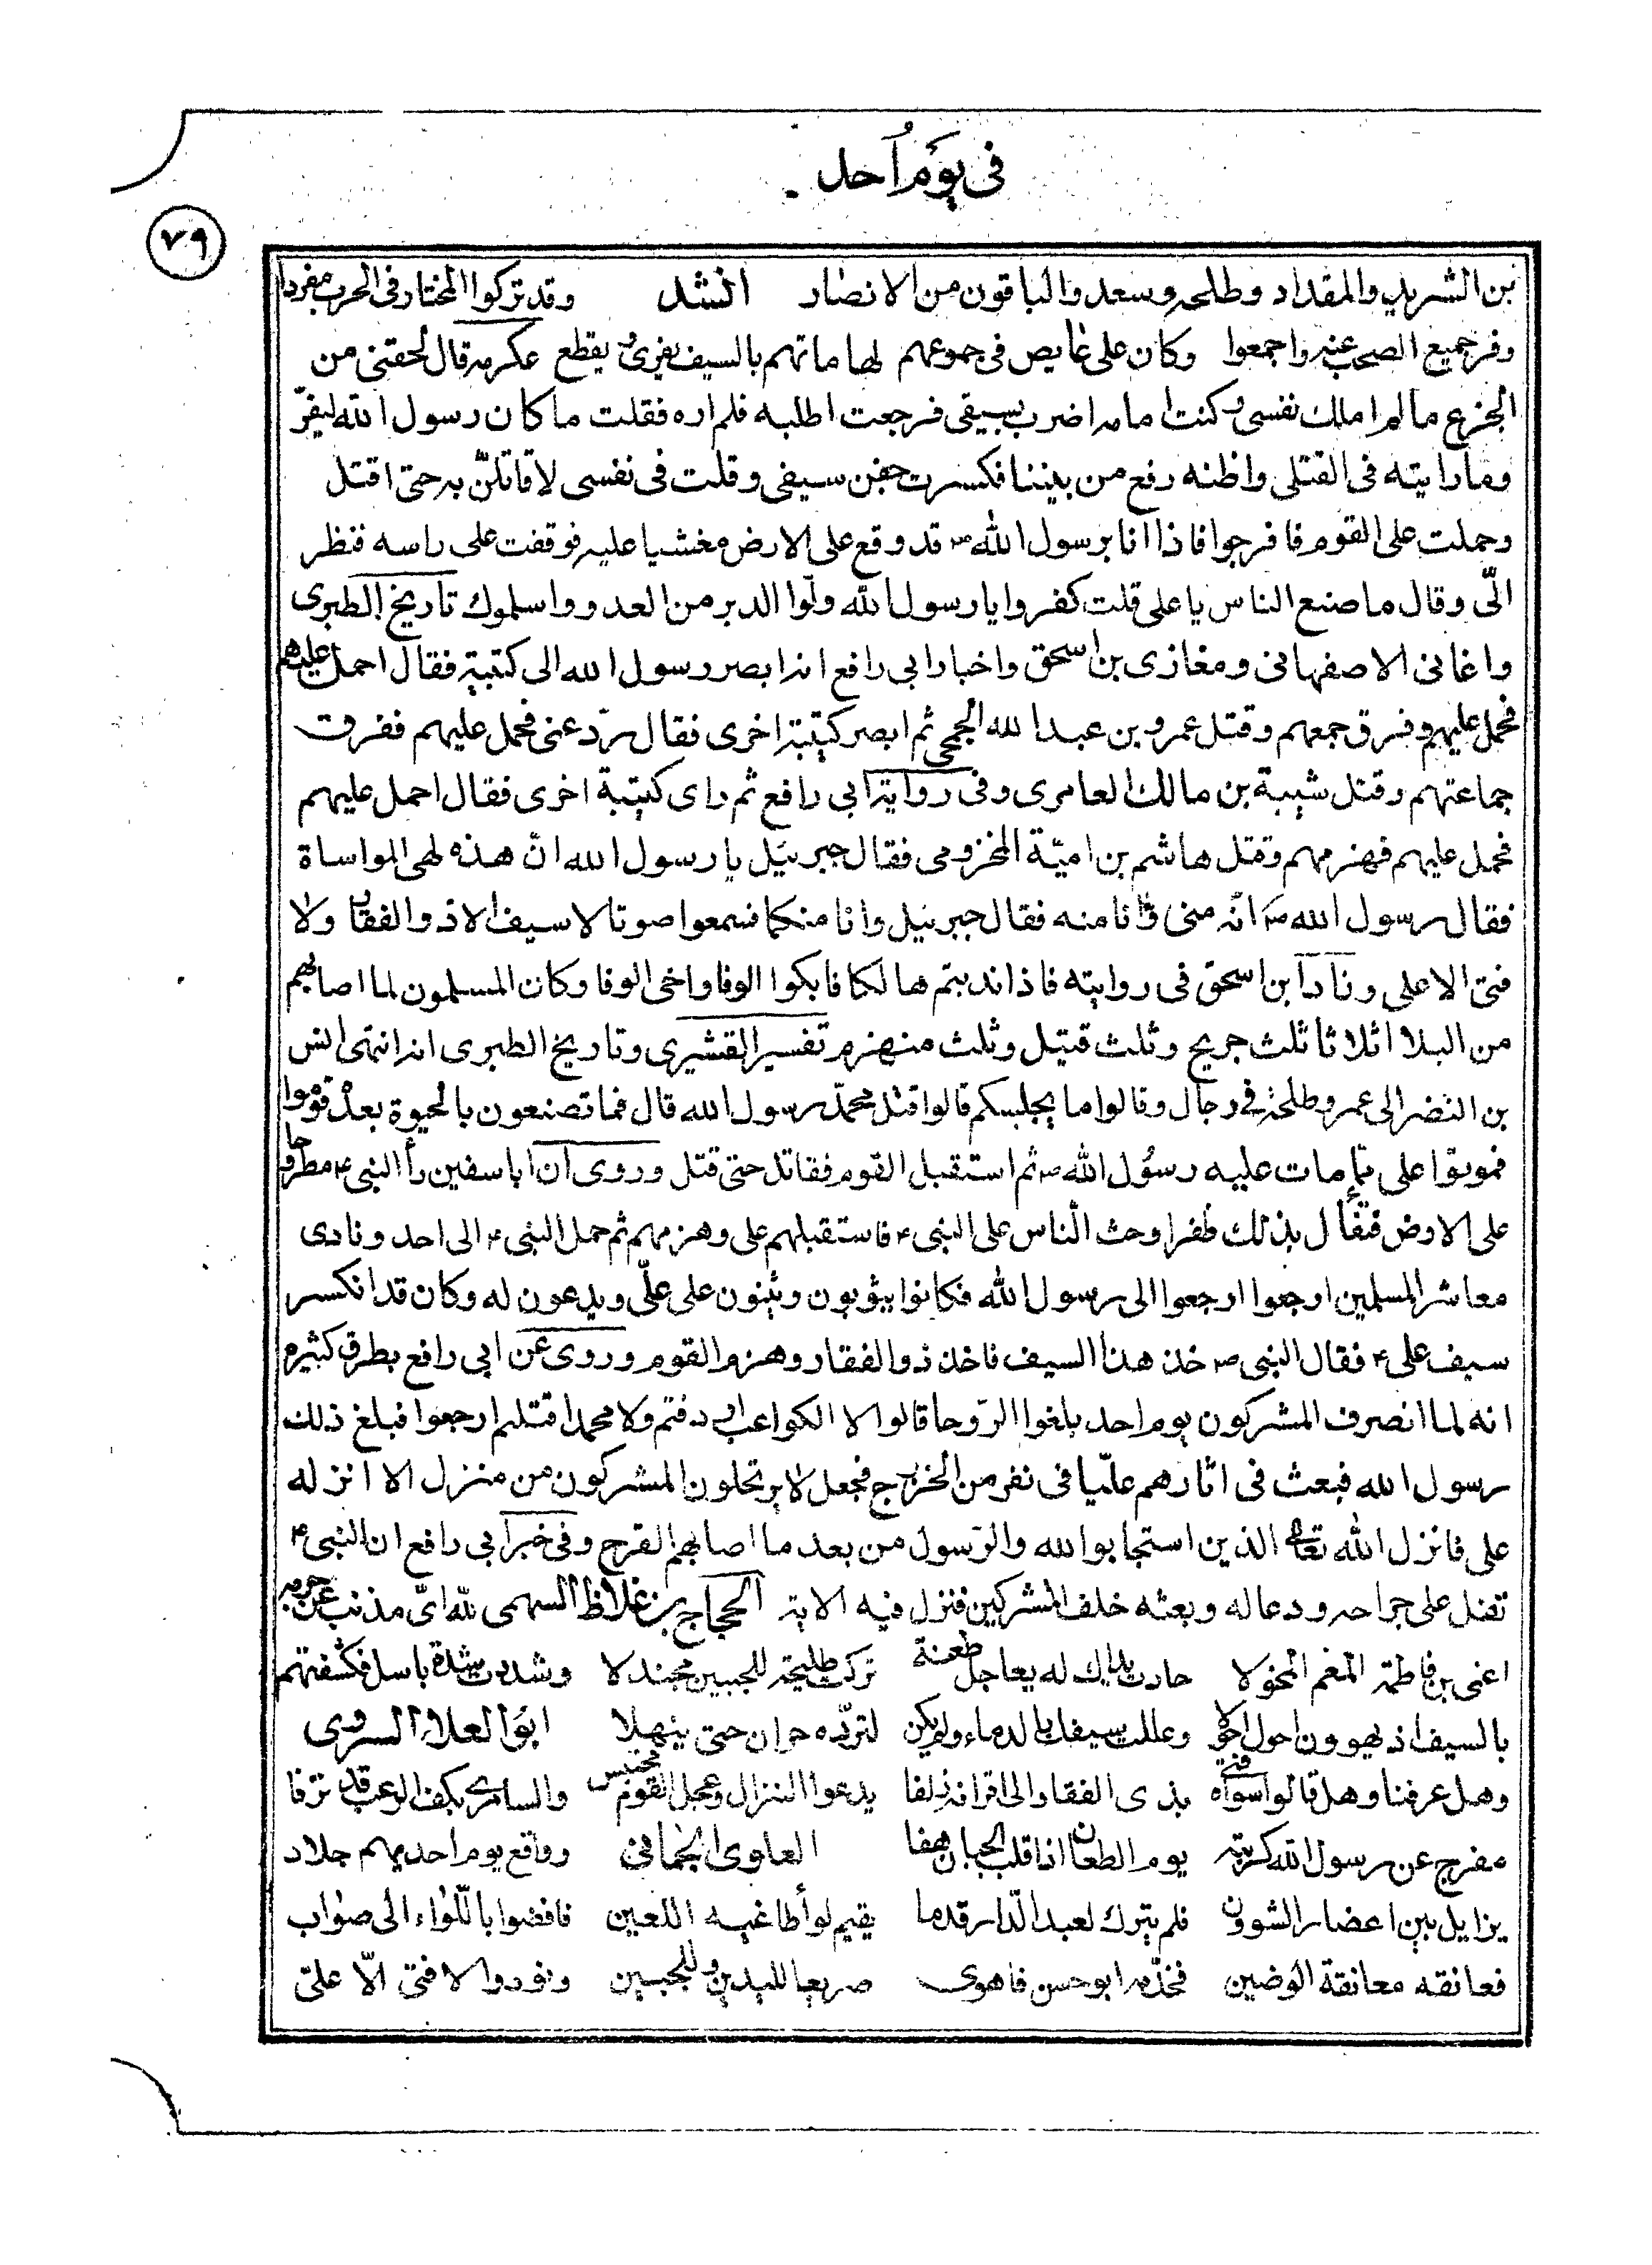 في يوم احد
٧٩
بن الشريد والمقداد وطلحة وسعد والباقون من الانصار انشد وقد تركوا المختار في الحرب مفردا
وفر جميع الصحب عنه واجمعوا وكان علي غايص في جموعهم لهاماتهم بالسيف يفرى ويقطع عكرمه قال لحقني من
الجزع ما لم املك نفسي وكنت امامه اضرب بسيفي فرجعت اطلبه فلم اره فقلت ما كان رسول الله ليفرّ
وما رايته في القتلى واظنه رفع من بيننا فكسرت جفن سيفي وقلت في نفسي لاقاتلنّ به حتى اقتل
وحملت على القوم فافرجوا فاذا انا برسول الله ص قد وقع على الارض مغشيا عليه فوقفت على راسه فنظر
الىّ وقال ما صنع الناس يا علي قلت كفروا يا رسول الله ولّوا الدبر من العدو واسلموك تاريخ الطبرى
واغاني الاصفهاني ومغازى بن اسحق واخبار ابي رافع انه ابصر رسول الله الى كتيبة فقال احمل عليهم
فحمل عليهم وفرق جمعهم وقتل عمرو بن عبد الله الجمحي ثم ابصر كتيبة اخرى فقال ردّ عني فحمل عليهم ففرق
جماعتهم وقتل شيبة بن مالك العامرى وفي رواية ابي رافع ثم راى كتيبة اخرى فقال احمل عليهم
فحمل عليهم فهزمهم وقتل هاشم بن اميّة المخزومي فقال جبرئيل يا رسول الله انّ هذه لهي المواساة
فقال رسول الله ص انّه مني وانا منه فقال جبرئيل وانا منكما فسمعوا صوتا لا سيف الا ذو الفقار ولا
فتى الا علي وزاد ابن اسحق في روايته فاذا ندبتم هالكا فابكوا الوفا واخى الوفا وكان المسلمون لما اصابهم
من البلا اثلاثا ثلث جريح وثلث قتيل وثلث منهزم تفسير القشيرى وتاريخ الطبرى انه انتهى انس
بن النضر الى عمر وطلحة في رجال وقالوا ما يجلسكم قالوا قتل محمّد رسول الله قال فما تصنعون بالحيوة بعده قوموا
فموتوا على ما مات عليه رسول الله ص ثم استقبل القوم فقاتل حتى قتل وروى ان اباسفين رأ النبي ص مطروحا
على الارض فتفأل بذلك ظفرا وحث الناس على النبي ص فاستقبلهم علي وهزمهم ثم حمل النبي ص الى احد ونادى
معاشر المسلمين ارجعوا ارجعوا الى رسول الله فكانوا يثوبون ويثنون على عليّ ويدعون له وكان قد انكسر
سيف علي ع فقال النبي ص خذ هذا السيف فاخذ ذو الفقار وهزم القوم وروى عن ابي رافع بطرق كثيرة
انه لما انصرف المشركون يوم احد بلغوا الرّوحا قالوا لا الكواعب اردفتم ولا محمدا قتلتم ارجعوا فبلغ ذلك
رسول الله فبعث في اثارهم عليّا في نفر من الخزرج فجعل لا يرتحلون المشركون من منزل الا نزله
علي فانزل الله تعالى الذين استجابوا لله والرّسول من بعد ما اصابهم القرح وفي خبر ابي رافع ان النبي ص
تفل على جراحه ودعا له وبعثه خلف المشركين فنزل فيه الاية الحجاج بن غلاظ السهمى لله اىّ مذنب عن حرمه
اعني بن فاطمة المعم المخولا جادت يداك له بعاجل طعنة تركت طليحة للجبين مجندلا وشددت شدة باسل فكشفتهم
بالسيف اذ يهوون اخول اخولا وعللت سيفك بالدماء ولم يكن لتردّه حران حتى ينهلا ابو العلاء السروى
وهل عرفنا وهل قالوا سواه فتى بذى الفقار الى اقرانه زلفا يدعوا النزال وعجل القوم محتبس والسامرى بكف الرعب قد نزفا
مفرج عن رسول الله كربته يوم الطعان اذا قلب الجبان هفا العلوى الحماني وواقع يوم احد بهم جلاد
يزايل بين اعضاء الشوون فلم يترك لعبد الدّار قدما يقيم لوأ طاغيه اللعين فافضوا باللّواء الى صواب
فعانقه معانقة الوضين فخذّمه ابو حسن فاهوى صريعا لليدين وللجبين ونودوا لا فتى الاّ عليّ